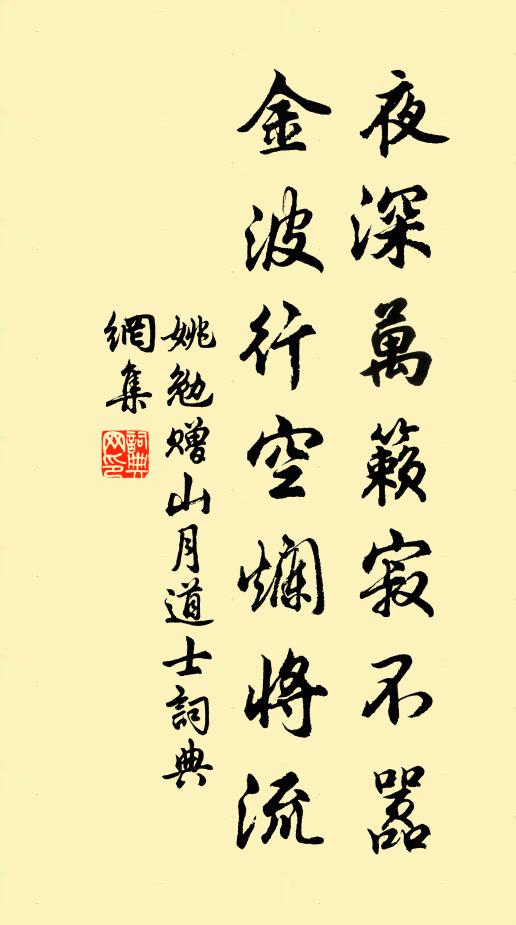 夜深萬籟寂不嚣
金波行空爛將流
姚勉赠山月道士詞典
網集
詞典網印